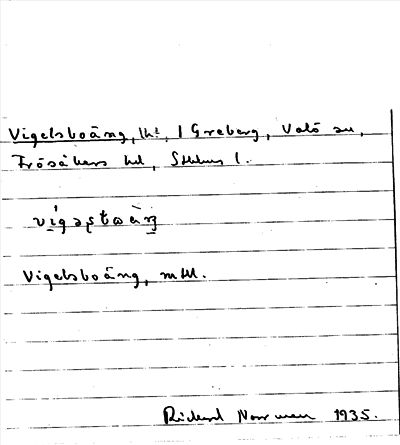 Vigelsboäng, lht, i Greberg, Valö sn,
Frösåkers hd, Sthlms l.
Vigelsboäng, mtl.
Rickard Norrman 1935.